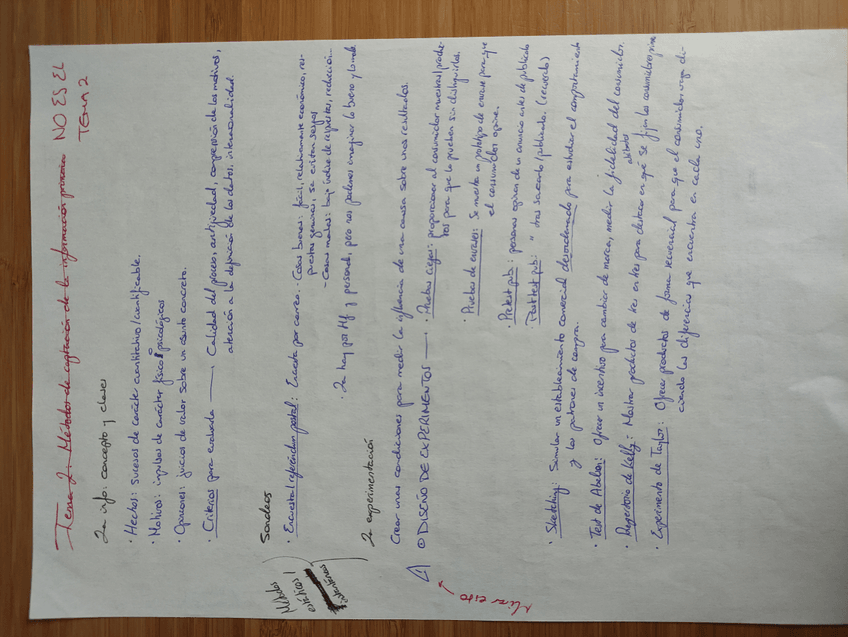 Tema 2. Métodos de captación de la información primaria NO ES EL
TEMA 2
La info: concepto y clases
· Hechos: sucesos de carácter cuantitativo/cuantificable.
· Motivos: impulsos de carácter físico o psicológicos
· Opiniones: juicios de valor sobre un asunto concreto.
· Criterios para evaluarla → Calidad del proceso, antigüedad, comprensión de los motivos,
atención a la definición de los datos, intencionalidad.
Métodos
estáticos /
Sondeos
· Encuesta / referéndum postal: Encuesta por correo. · Cosas buenas: fácil, relativamente económico, res-
puestas genuinas, se evitan sesgos
- Cosas malas: bajo índice de respuestas, reducción...
· La hay por tlf y personal, pero nos podemos imaginar lo bueno y lo malo
La experimentación
Crear unas condiciones para medir la influencia de una causa sobre unos resultados.
DISEÑO DE EXPERIMENTOS → · Pruebas ciegas: proporcionar al consumidor muestras/produc-
tos para que lo prueben sin distinguirlos.
· Pruebas de envases: Se muestra un prototipo de envase para que
el consumidor opine.
· Pretest pub.: personas opinan de un anuncio antes de publicarlo
Posttest pub.: " tras sacarlo/publicarlo. (recuerdo)
Mirar esto
· Sketching: Simular un establecimiento comercial desordenado para estudiar el comportamiento
y los patrones de compra.
· Test de Abelson: Ofrecer un incentivo para cambiar de marca, medir la fidelidad del consumidor.
· Repertorio de Kelly: Mostrar productos de tres en tres para destacar en qué se fijan los consumidores
· Experimento de Taylor: Ofrecer productos de forma secuencial para que el consumidor vaya di-
ciendo las diferencias que encuentra en cada uno.